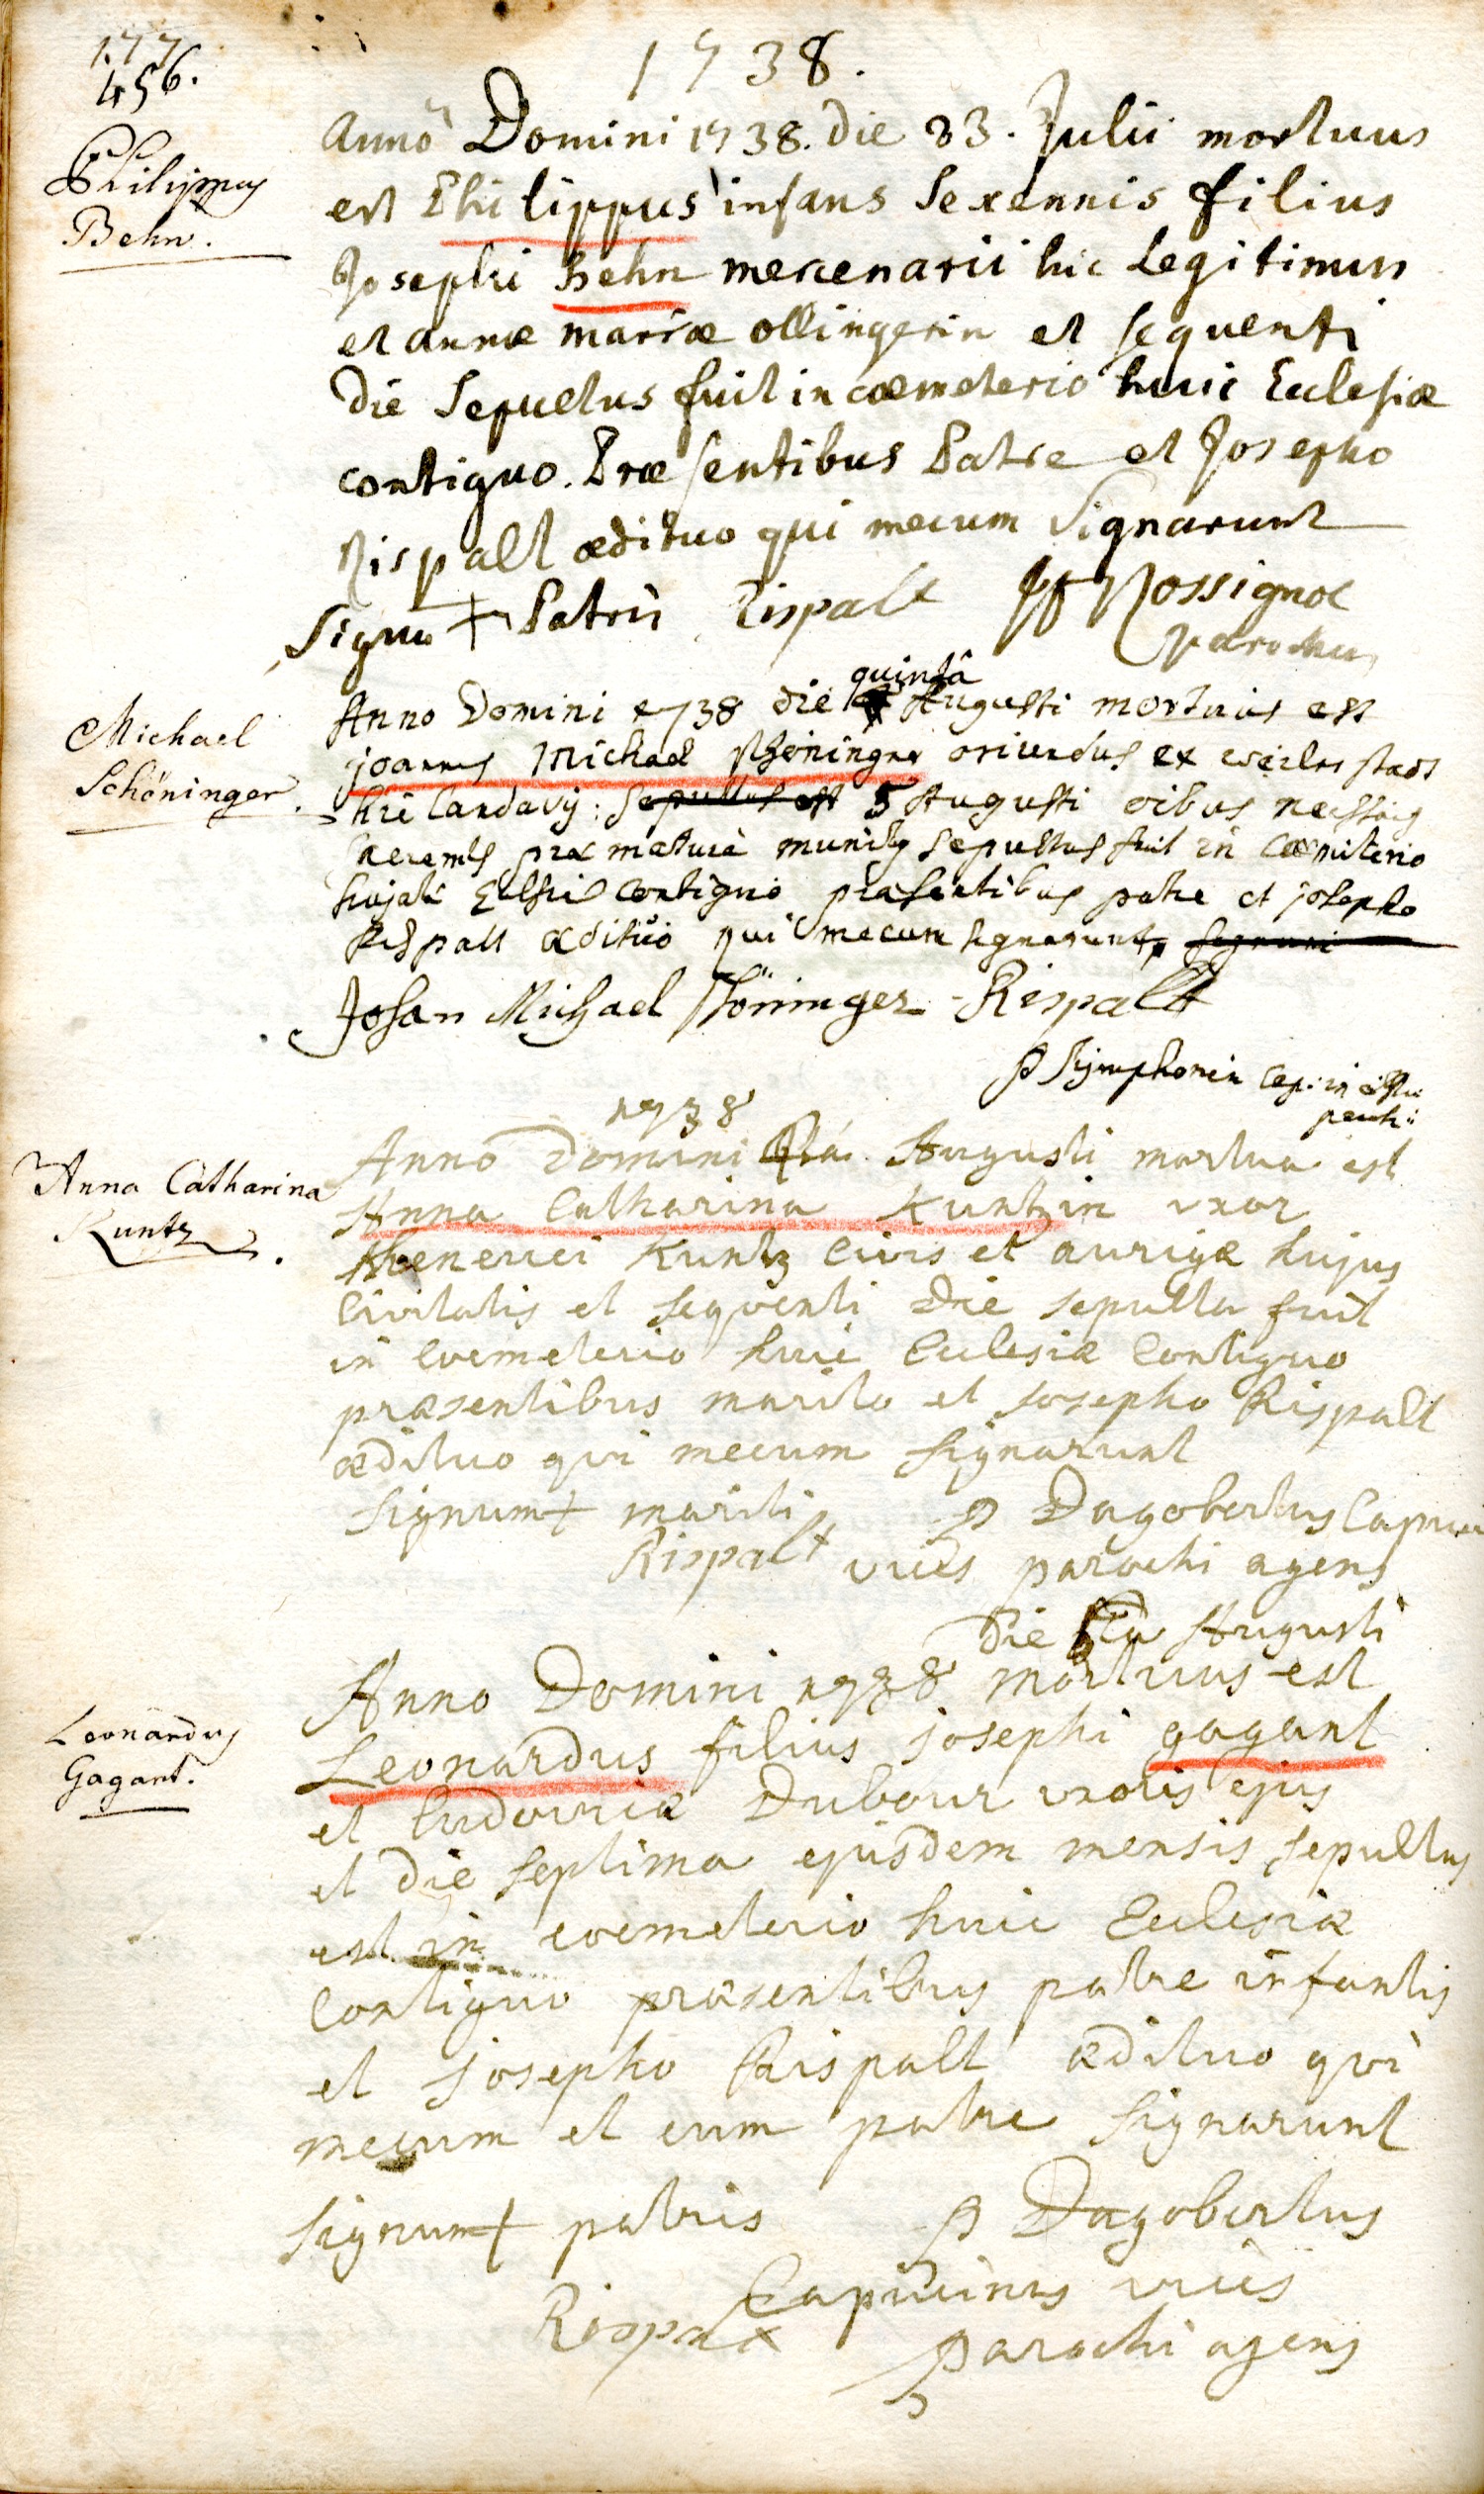 177
456.
1738.
Philippus
Behn.
Anno Domini 1738. die 23. Julii mortuus
est Philippus infans Sexennis filius
Josephi behn mercenarii hic Legitimus
et annæ mariæ ollingerin et sequenti
die Sepultus fuit in cœmeterio huic Ecclesiæ
contiguo. Præsentibus Patre et Josepho
Rispalt ædituo qui mecum Signarunt
Signu + Patris Rispalt Rossignol
parochus
Michael
Schöninger.
quintâ
Anno Domini 1738 die Augusti mortuus est
joannes Michael oriundus ex
Landavij: sepultus est 5 Augusti
præmaturè munitus sepultus fuit in
contiguo præsentibus patre et josepho
Rispalt ædituo qui mecum signarunt
Johan Michael Schöninger Rispalt
P Symphorian Cap:
Anna Catharina
Kuntz.
1738
Anno Domini Augusti mortua est
Anna Catharina Kuntzin uxor
Kuntz civis et aurigæ hujus
Civitatis et sequenti die sepulta fuit
in coemeterio huic Eclesiæ Contiguo
præsentibus marito et Josepho Rispalt
ædituo qui mecum signarunt
signum + mariti P Dagobertus
Rispalt vices parochi agens
Leonardus
Gagant.
die Augusti
Anno Domini 1738 mortuus est
Leonardus filius josephi gagant
et ludovicæ Dubour uxoris ejus
et die septima ejusdem mensis sepultus
est in coemeterio huic Eclesiæ
Contiguo præsentibus patre infantis
et josepho Rispalt ædituo qui
mecum et cum patre signarunt
signum + patris P Dagobertus
Capucinus vices
Rispalt parochi agens